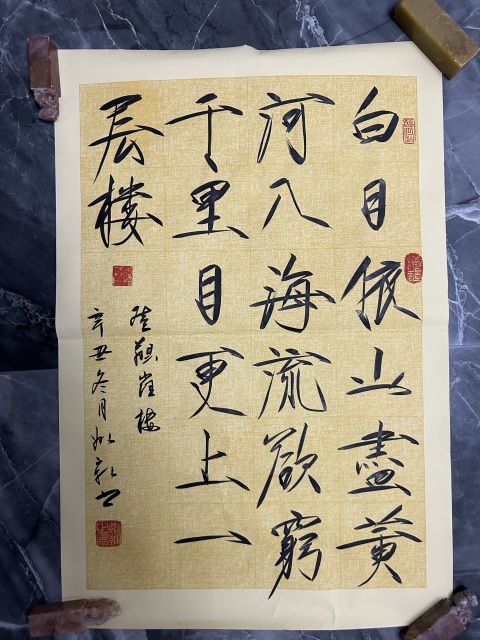 白日依山盡黄
河入海流欲窮
千里目更上一
层楼
登鹳雀楼
辛丑冬月